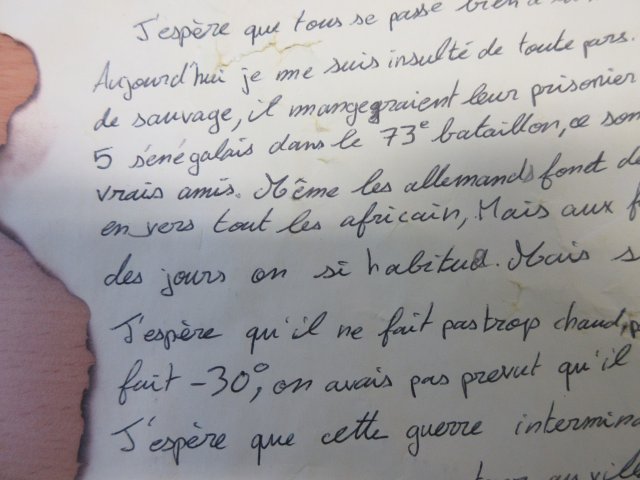 J'espère que tous se passe bien à
Aujourd'hui je me suis insulté de toute pars.
de sauvage, il mangegraient leur prisonier
5 sénégalais dans le 73e bataillon, ce son
vrais amis. Même les allemands font d
en vers tout les africain, Mais aux f
des jours on si habitué. Mais s
J'espère qu'il ne fait pas trop chaud, p
fait -30°, on avais pas prevut qu'il
J'espère que cette guerre intermina